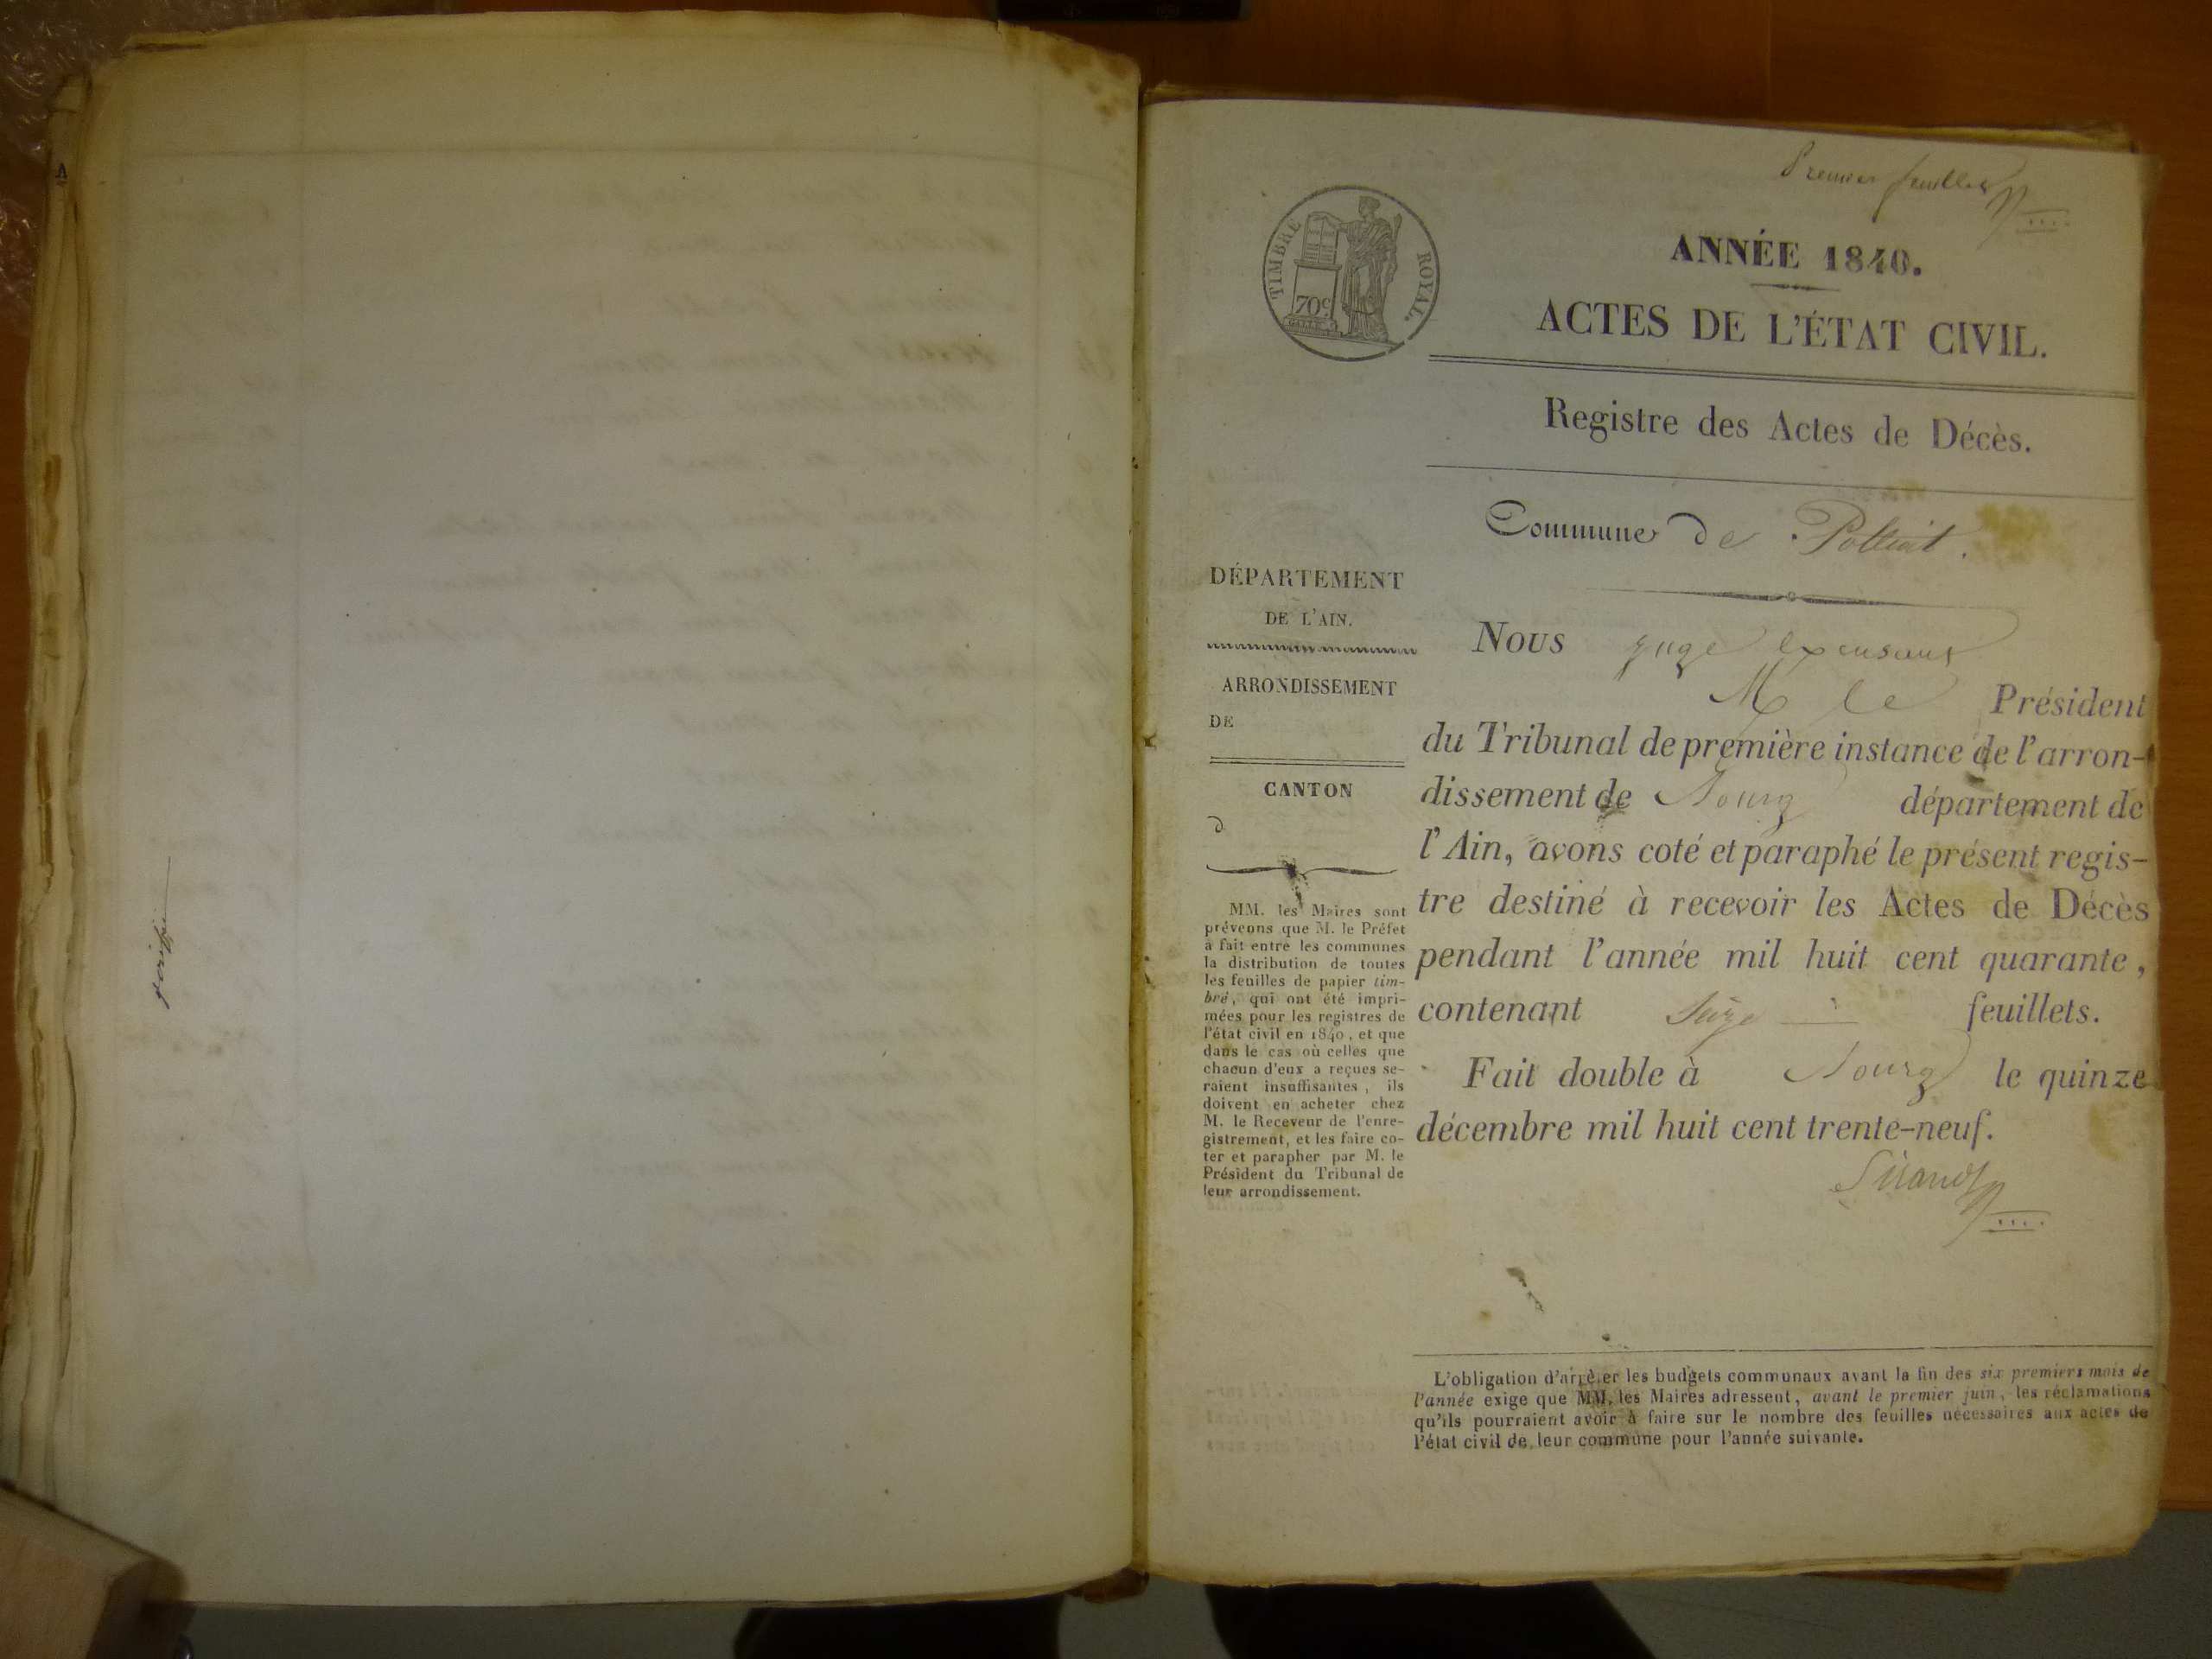 Premier feuillet
TIMBRE ROYAL.
70c
ANNÉE 1840.
ACTES DE L'ÉTAT CIVIL.
Registre des Actes de Décès.
Commune de Polliat.
DÉPARTEMENT
DE L'AIN.
ARRONDISSEMENT
DE
CANTON
d
MM. les Maires sont
prévenus que M. le Préfet
a fait entre les communes
la distribution de toutes
les feuilles de papier tim-
bré, qui ont été impri-
mées pour les registres de
l'état civil en 1840, et que
dans le cas où celles que
chacun d'eux a reçues se-
raient insuffisantes, ils
doivent en acheter chez
M. le Receveur de l'enre-
gistrement, et les faire co-
ter et parapher par M. le
Président du Tribunal de
leur arrondissement.
Nous juge excusant
M le Président
du Tribunal de première instance de l'arron-
dissement de Bourg département de
l'Ain, avons coté et paraphé le présent regis-
tre destiné à recevoir les Actes de Décès
pendant l'année mil huit cent quarante,
contenant Seize feuillets.
Fait double à Bourg le quinze
décembre mil huit cent trente-neuf.
L'obligation d'arrêter les budgets communaux avant la fin des six premiers mois de
l'année exige que MM. les Maires adressent, avant le premier juin, les réclamations
qu'ils pourraient avoir à faire sur le nombre des feuilles nécessaires aux actes de
l'état civil de leur commune pour l'année suivante.